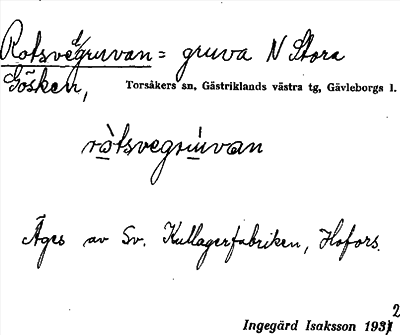 Rotsvegruvan = gruva N Stora
Gösken, Torsåkers sn, Gästriklands västra tg, Gävleborgs l.
ròtsvegrùvan
Äges av Sv. Kullagerfabriken, Hofors.
Ingegärd Isaksson 1932